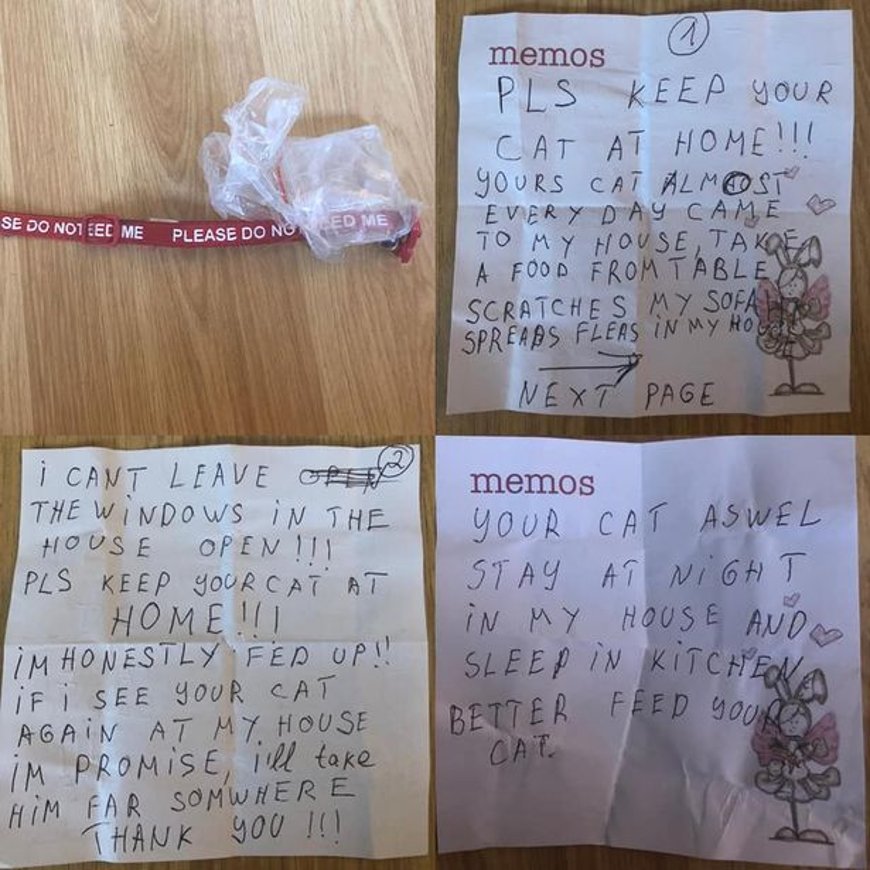 SE DO NOT EED ME PLEASE DO NO EED ME
1
memos
PLS KEEP YOUR
CAT AT HOME!!!
YOURS CAT ALMOST
EVERY DAY CAME
TO MY HOUSE, TAKE
A FOOD FROM TABLE
SCRATCHES MY SOFA
SPREADS FLEAS IN MY HOUSE
NEXT PAGE
2
I CANT LEAVE
THE WINDOWS IN THE
HOUSE OPEN!!!
PLS KEEP YOUR CAT AT
HOME!!!
IM HONESTLY FED UP!!
IF I SEE YOUR CAT
AGAIN AT MY HOUSE
IM PROMISE, i'll take
HIM FAR SOMWHERE
THANK YOU !!!
memos
YOUR CAT ASWEL
STAY AT NIGHT
IN MY HOUSE AND
SLEEP IN KITCHEN.
BETTER FEED YOUR
CAT.